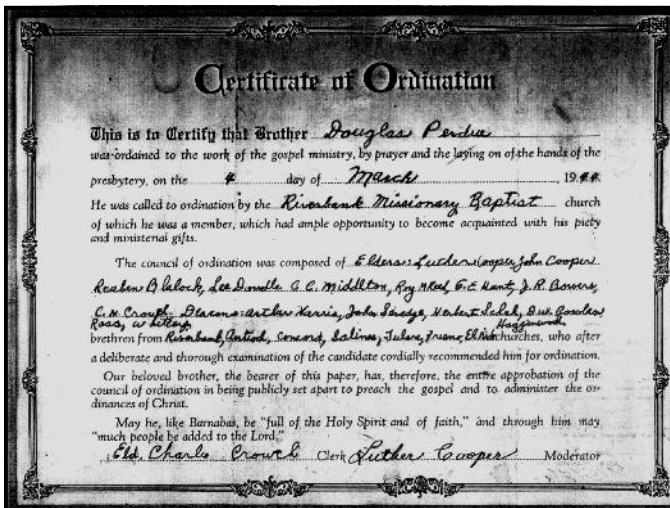 Certificate of Ordination
This is to Certify that Brother Douglas Perdue
was ordained to the work of the gospel ministry, by prayer and the laying on of the hands of the
presbytery, on the 4 day of March, 1944.
He was called to ordination by the Riverbank Missionary Baptist church
of which he was a member, which had ample opportunity to become acquainted with his piety
and ministerial gifts.
The council of ordination was composed of Elders: Luther Cooper, John Cooper
Reuben Blalock, Lee G. C. Middleton, Roy M. Reed, J. R. Bowers,
C. N. Crouch. Deacons: Arthur Harris, John Herbert
Ross, Haggerwood
brethren from Riverbank, Antioch, Concord, Salinas, Tulare, Fresno, churches, who after
a deliberate and thorough examination of the candidate cordially recommended him for ordination.
Our beloved brother, the bearer of this paper, has, therefore, the entire approbation of the
council of ordination in being publicly set apart to preach the gospel and to administer the or-
dinances of Christ.
May he, like Barnabas, be "full of the Holy Spirit and of faith," and through him may
"much people be added to the Lord."
Eld. Clerk Luther Cooper Moderator